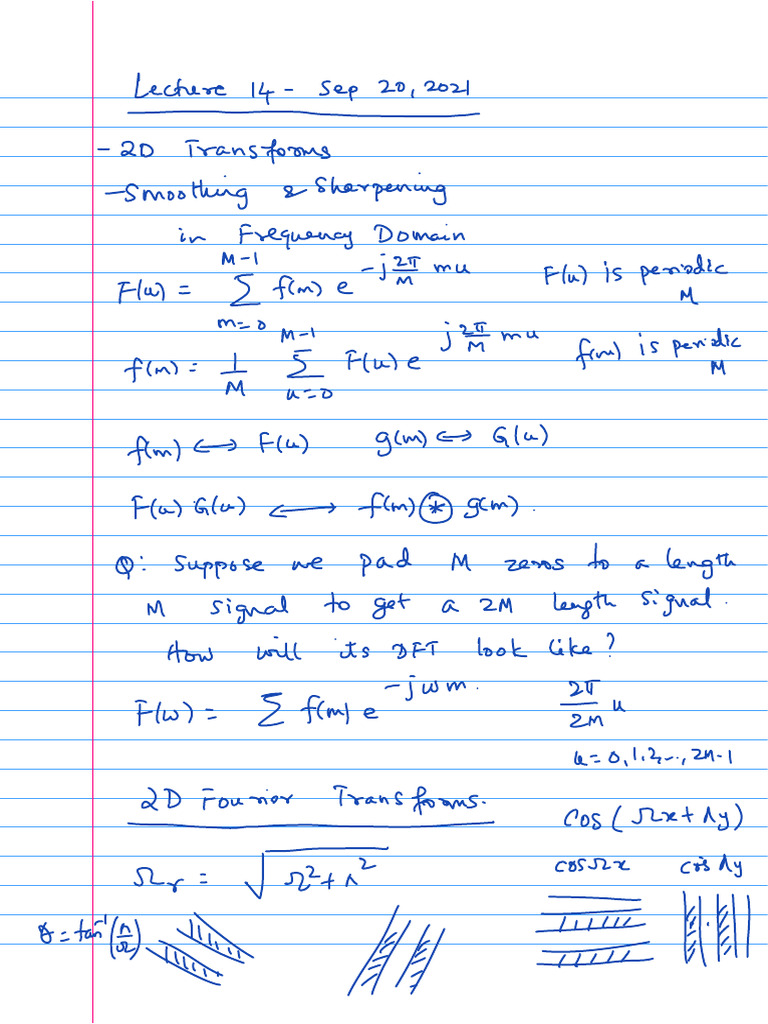 Lecture 14 - Sep 20, 2021
- 2D Transforms
- Smoothing & Sharpening
in Frequency Domain
F(u) = Σ_{m=0}^{M-1} f(m) e^{-j 2π/M mu} F(u) is periodic M
f(m) = 1/M Σ_{u=0}^{M-1} F(u) e^{j 2π/M mu} f(m) is periodic M
f(m) ↔ F(u) g(m) ↔ G(u)
F(u) G(u) ↔ f(m) ⊛ g(m).
Q: Suppose we pad M zeros to a length
M signal to get a 2M length signal.
How will its DFT look like?
F(ω) = Σ f(m) e^{-jωm}. 2π/2M u
u = 0, 1, 2, .., 2M-1
2D Fourier Transforms.
cos(Ωx + Λy)
Ωr = √(Ω² + Λ²) cos Ωx cos Λy
θ = tan⁻¹(Λ/Ω)